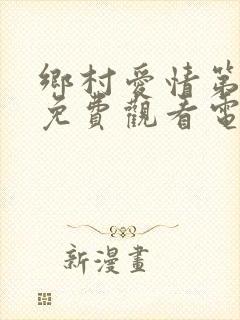 鄉村愛情第
免費觀看電
新漫畫